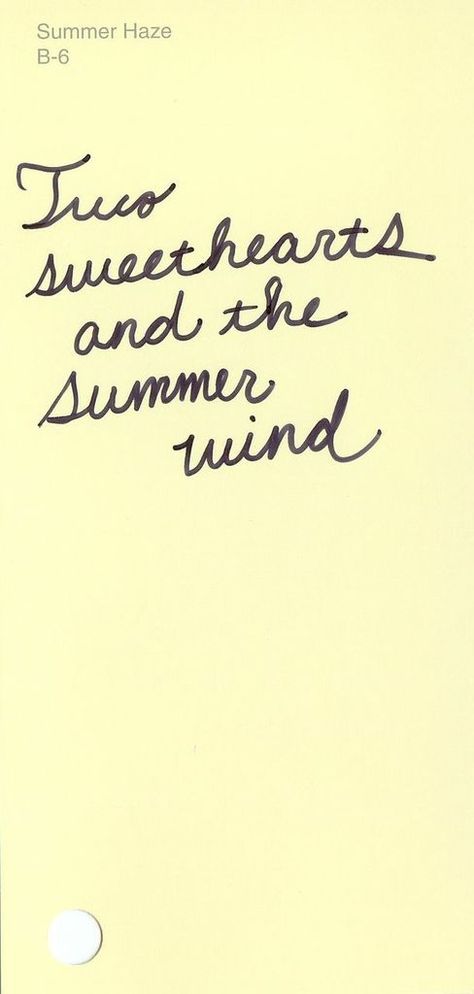 Summer Haze
B-6
Two
sweethearts
and the
summer
wind